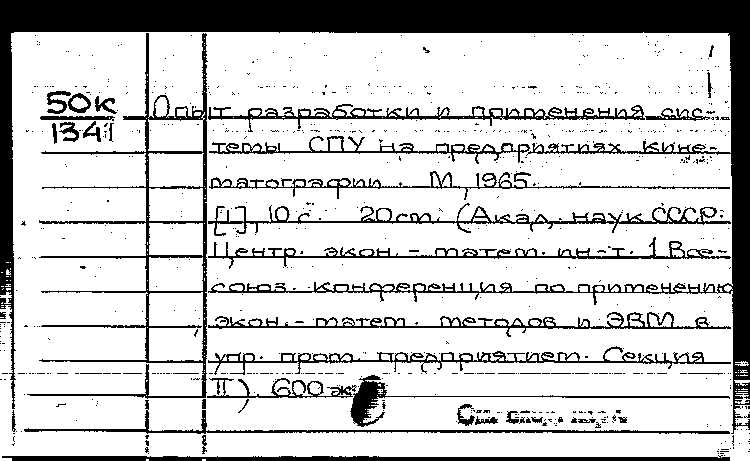 50к
134
Опыт разработки и применения сис-
темы СПУ на предприятиях кине-
матографии. М, 1965.
[1], 10 с. 20 cm. (Акад. наук СССР.
Центр. экон.-матем. ин-т. 1 Все-
союз. конференция по применению
экон.-матем. методов и ЭВМ в
упр. пром. предприятием. Секция
II). 600 эк